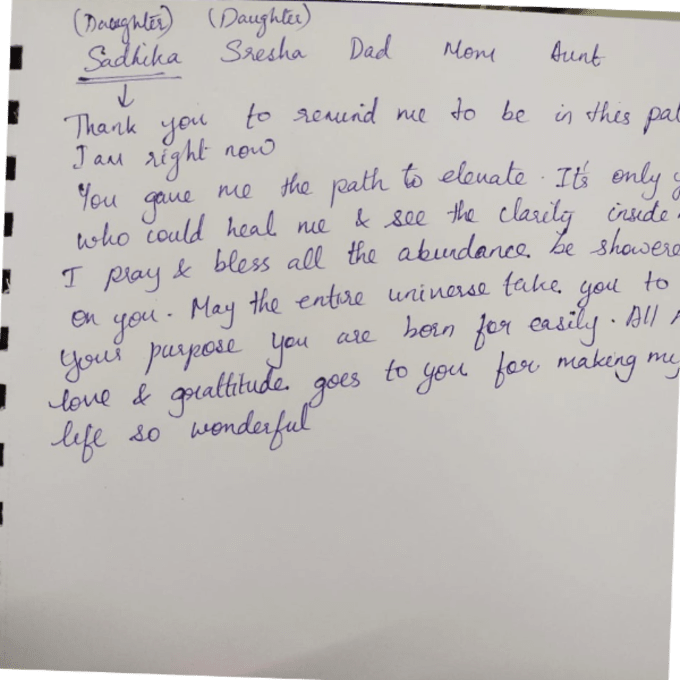 (Daughter) (Daughter)
Sadhika Sresha Dad Mom Aunt
Thank you to remind me to be in this pat
I am right now
You gave me the path to elevate. It's only y
who could heal me & see the clarity inside
I pray & bless all the abundance be showere
on you. May the entire universe take you to
your purpose you are born for easily. All
love & gratittude goes to you for making my
life so wonderful